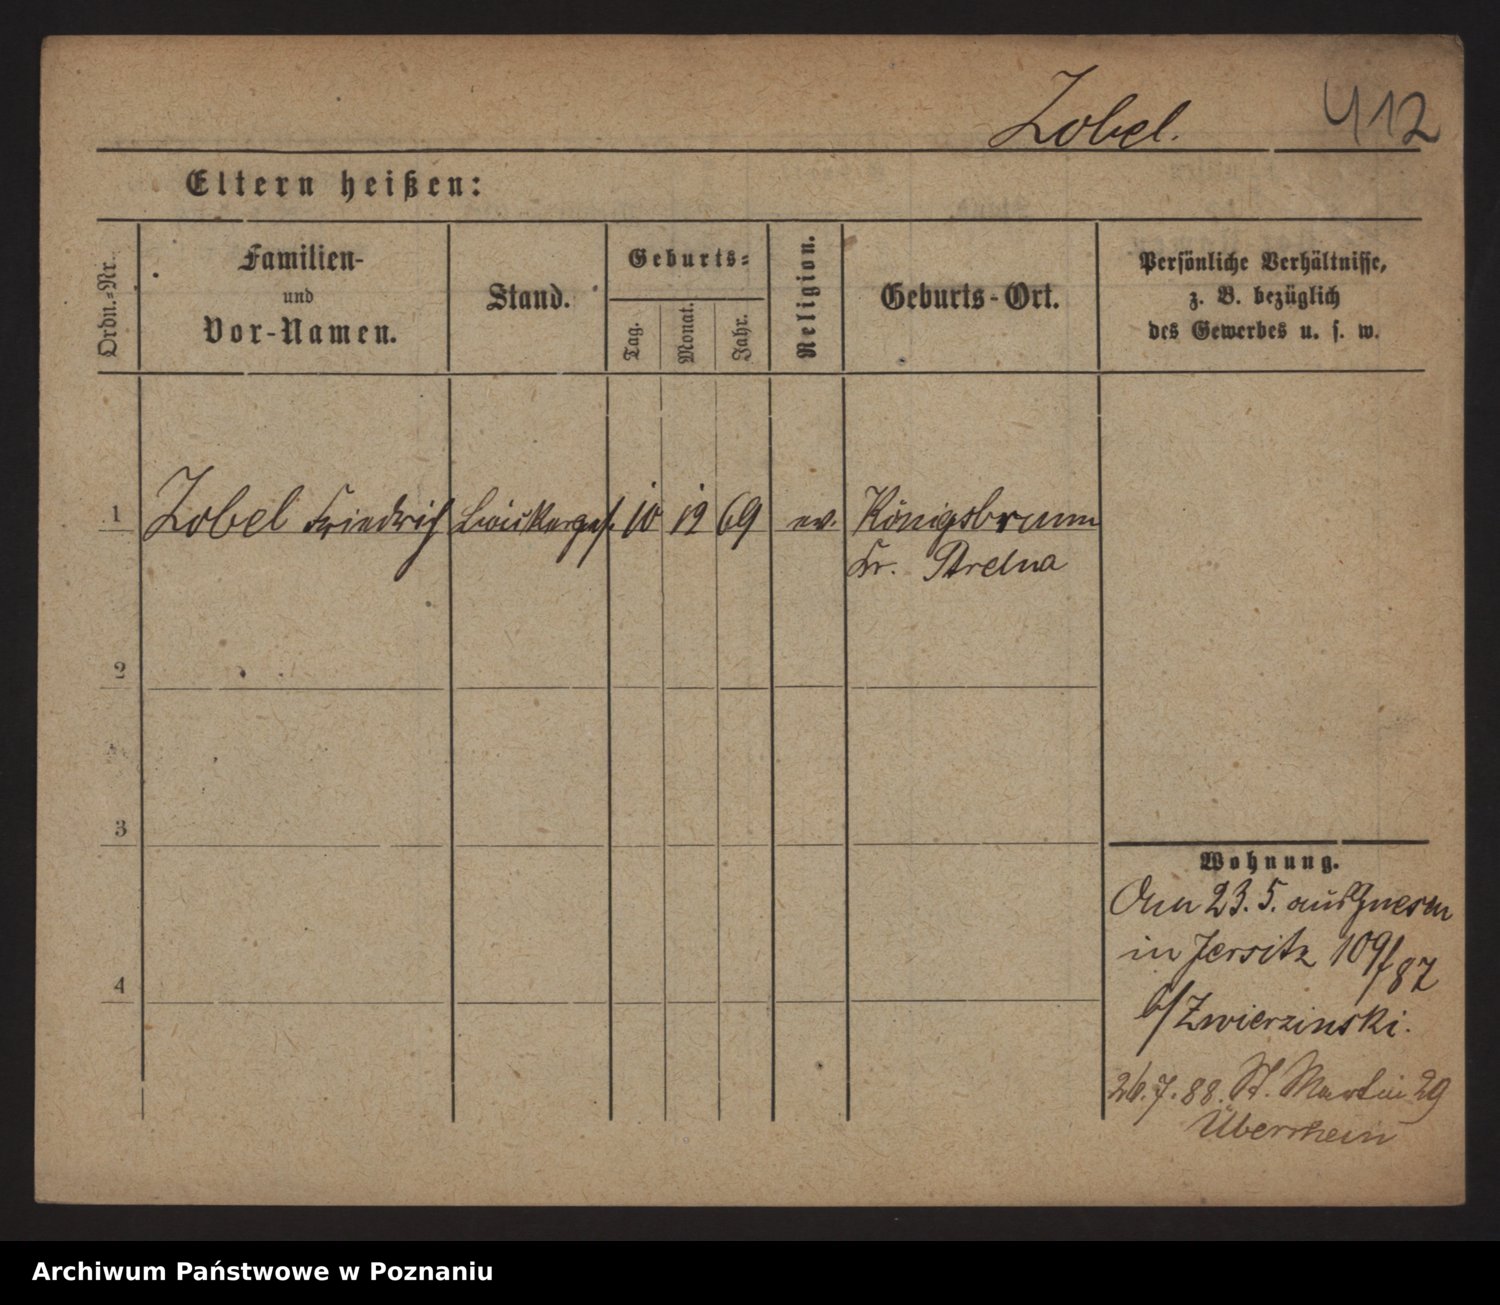 Zobel.
412
Eltern heißen:
Ordn.-Nr.
Familien-
und
Vor-Namen.
Stand.
Geburts-
Tag.
Monat.
Jahr.
Religion.
Geburts-Ort.
Persönliche Verhältnisse,
z. B. bezüglich
des Gewerbes u. s. w.
1
Zobel Friedrich
10
12
69
ev.
Königsbrunn
Kr. Strelna
2
3
4
Wohnung.
23. 5. aus Gnesen
in Jersitz 109/87
b/Zwierzinski.
26. 7. 88. St. Martin 29
Archiwum Państwowe w Poznaniu